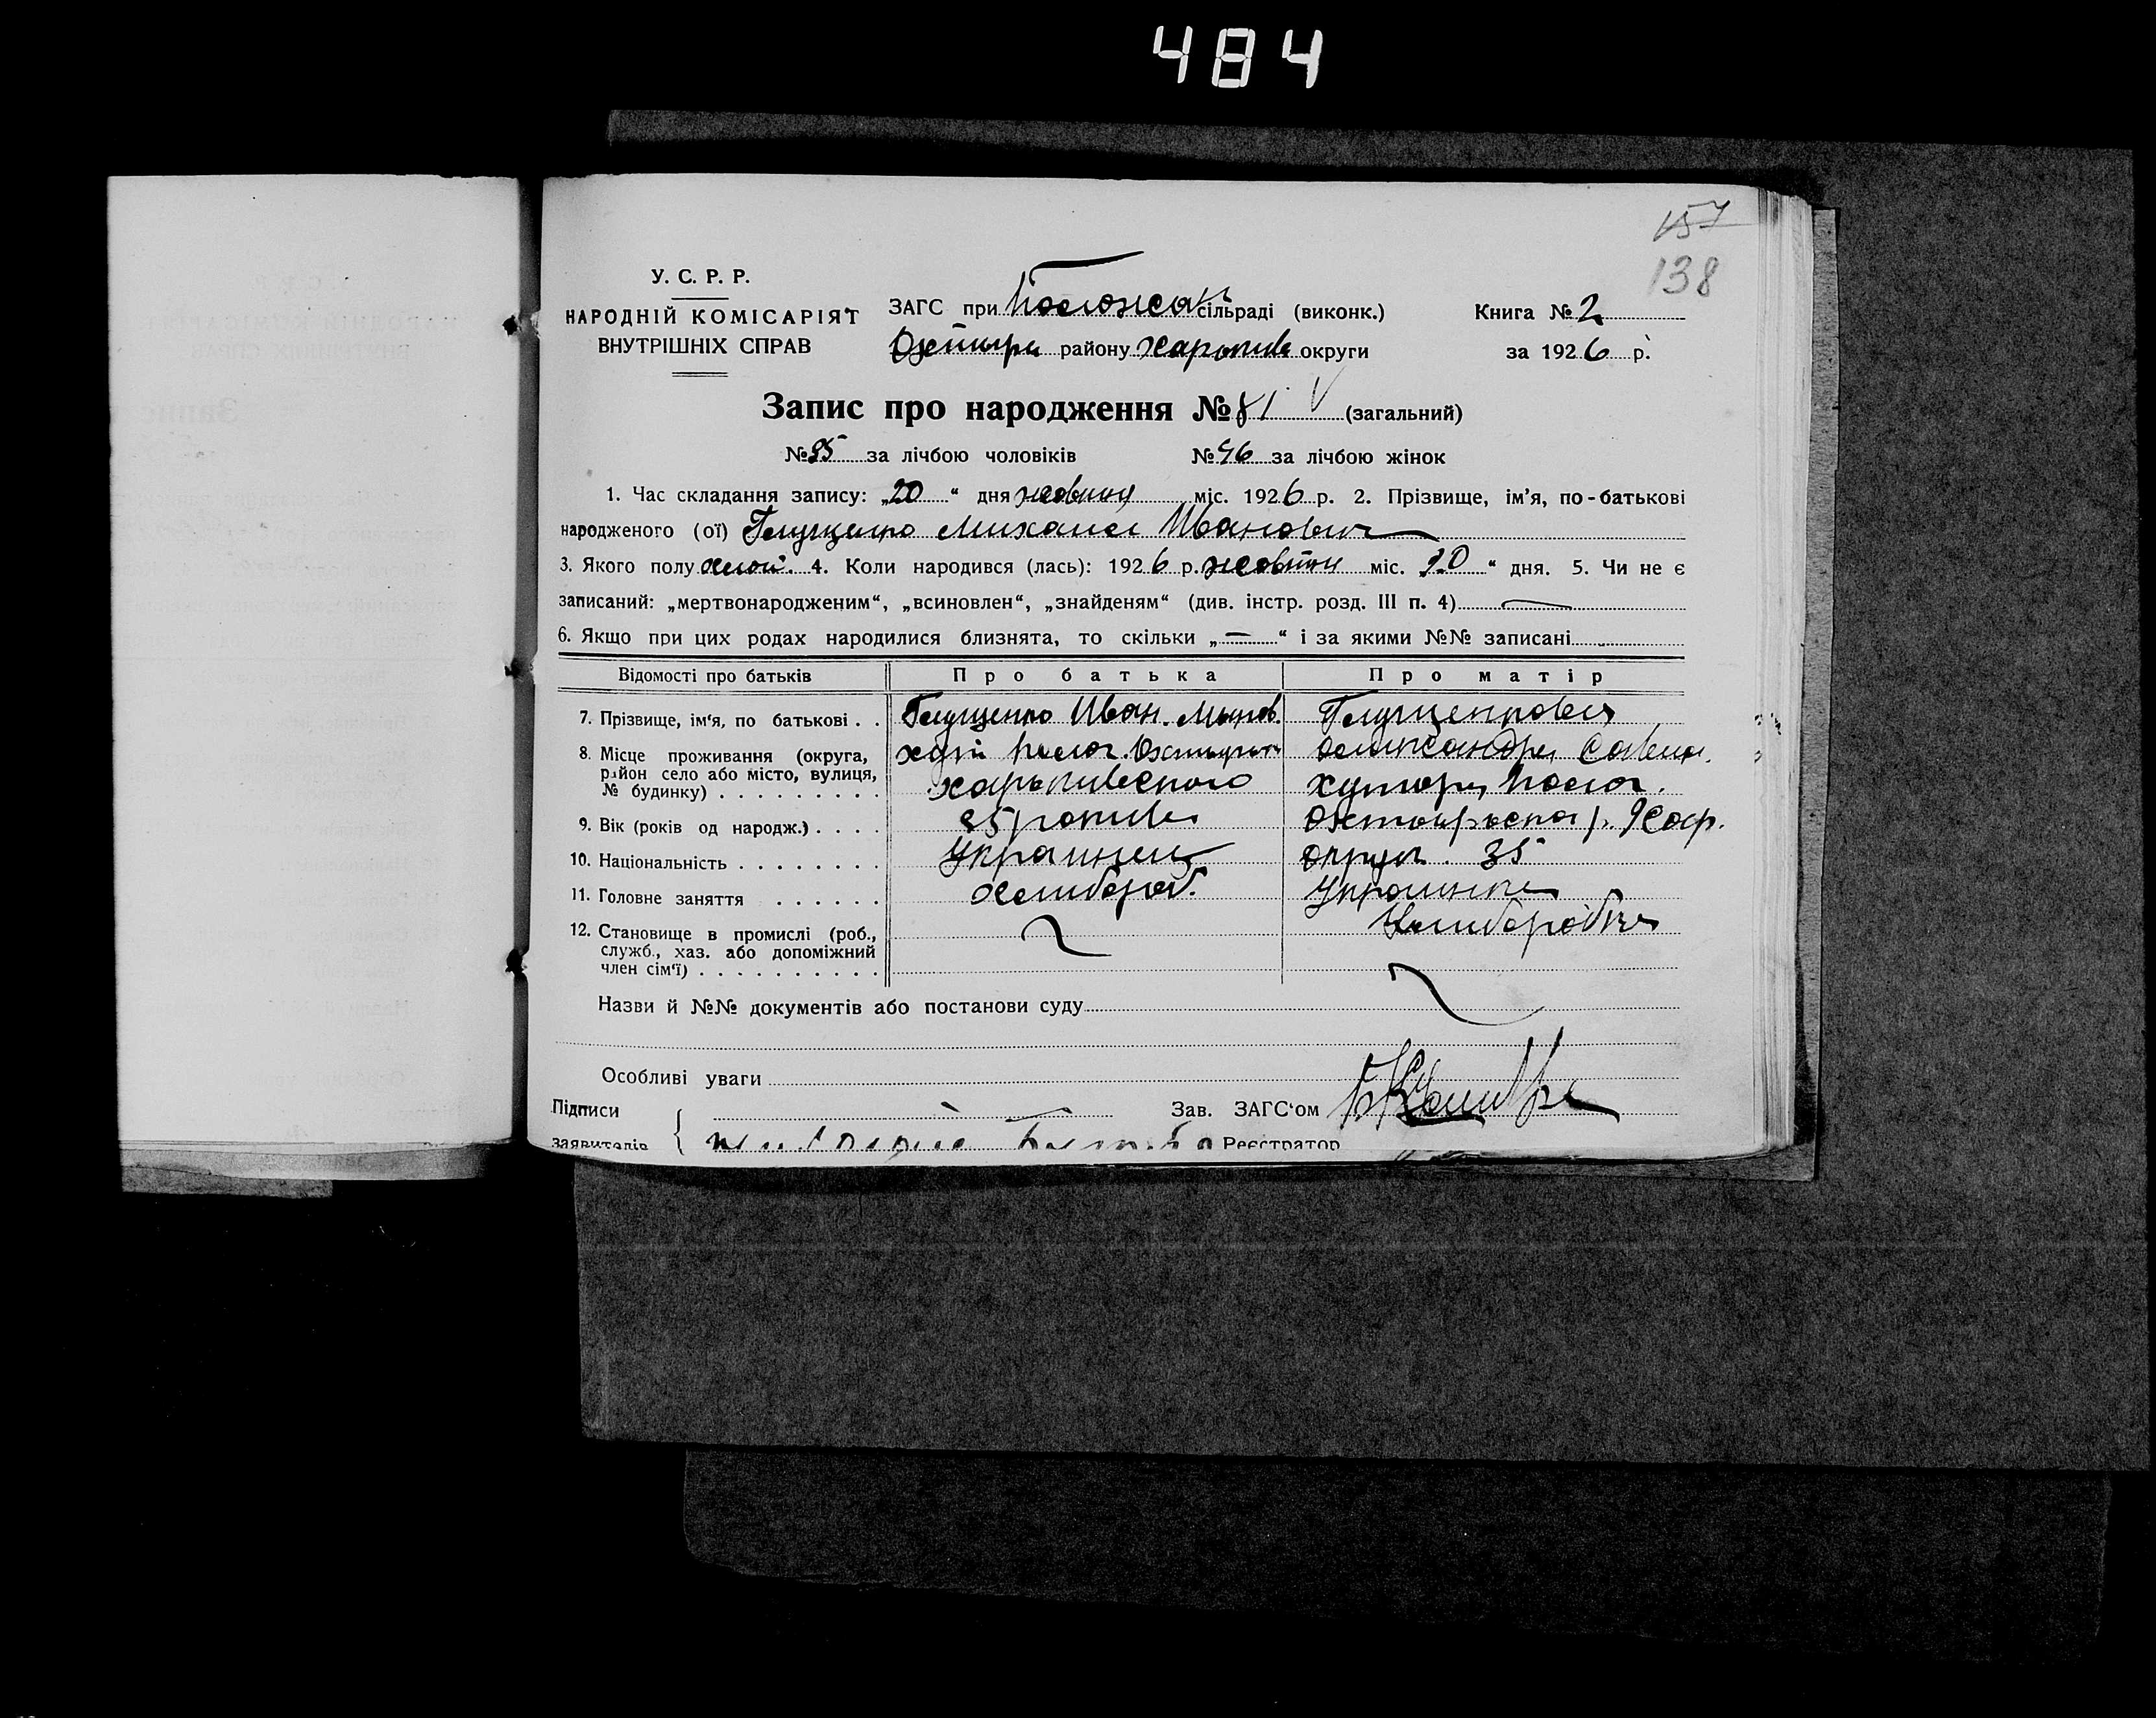 484
157
138
У. С. Р. Р.
НАРОДНІЙ КОМІСАРІЯТ
ВНУТРІШНІХ СПРАВ
ЗАГС при сільраді (виконк.)
Охтирк району Харьків округи
Книга № 2
за 1926 р.
Запис про народження № 81 (загальний)
№ 35 за лічбою чоловіків № 46 за лічбою жінок
1. Час складання запису: „20“ дня жовтня міс. 1926 р. 2. Прізвище, ім'я, по-батькові
народженого (ої) Глущенко Михаил Иванович
3. Якого полу 4. Коли народився (лась): 1926 р. жовтня міс. 20 “ дня. 5. Чи не є
записаний: „мертвонародженим“, „всиновлен“, „знайденям“ (див. інстр. розд. III п. 4) —
6. Якщо при цих родах народилися близнята, то скільки „—“ і за якими №№ записані
Відомості про батьків Про батька Про матір
7. Прізвище, ім'я, по батькові . . Глущенко Иван. Глущенкова
8. Місце проживання (округа, район село або місто, вулиця, № будинку) . . . . . . . . . Харьківского Олександра Савина. хутор
9. Вік (років од народж.) . . . . 35 років Харк. округи. 35
10. Національність . . . . . . . . Украинец Украинка
11. Головне заняття . . . . . . Хлибороб. Хлиборобка
12. Становище в промислі (роб.,
служб., хаз. або допоміжний
член сім'ї) . . . . . . . . . .
Назви й №№ документів або постанови суду
Особливі уваги
Підписи
Зав. ЗАГС'ом
заявителів { Реєстратор